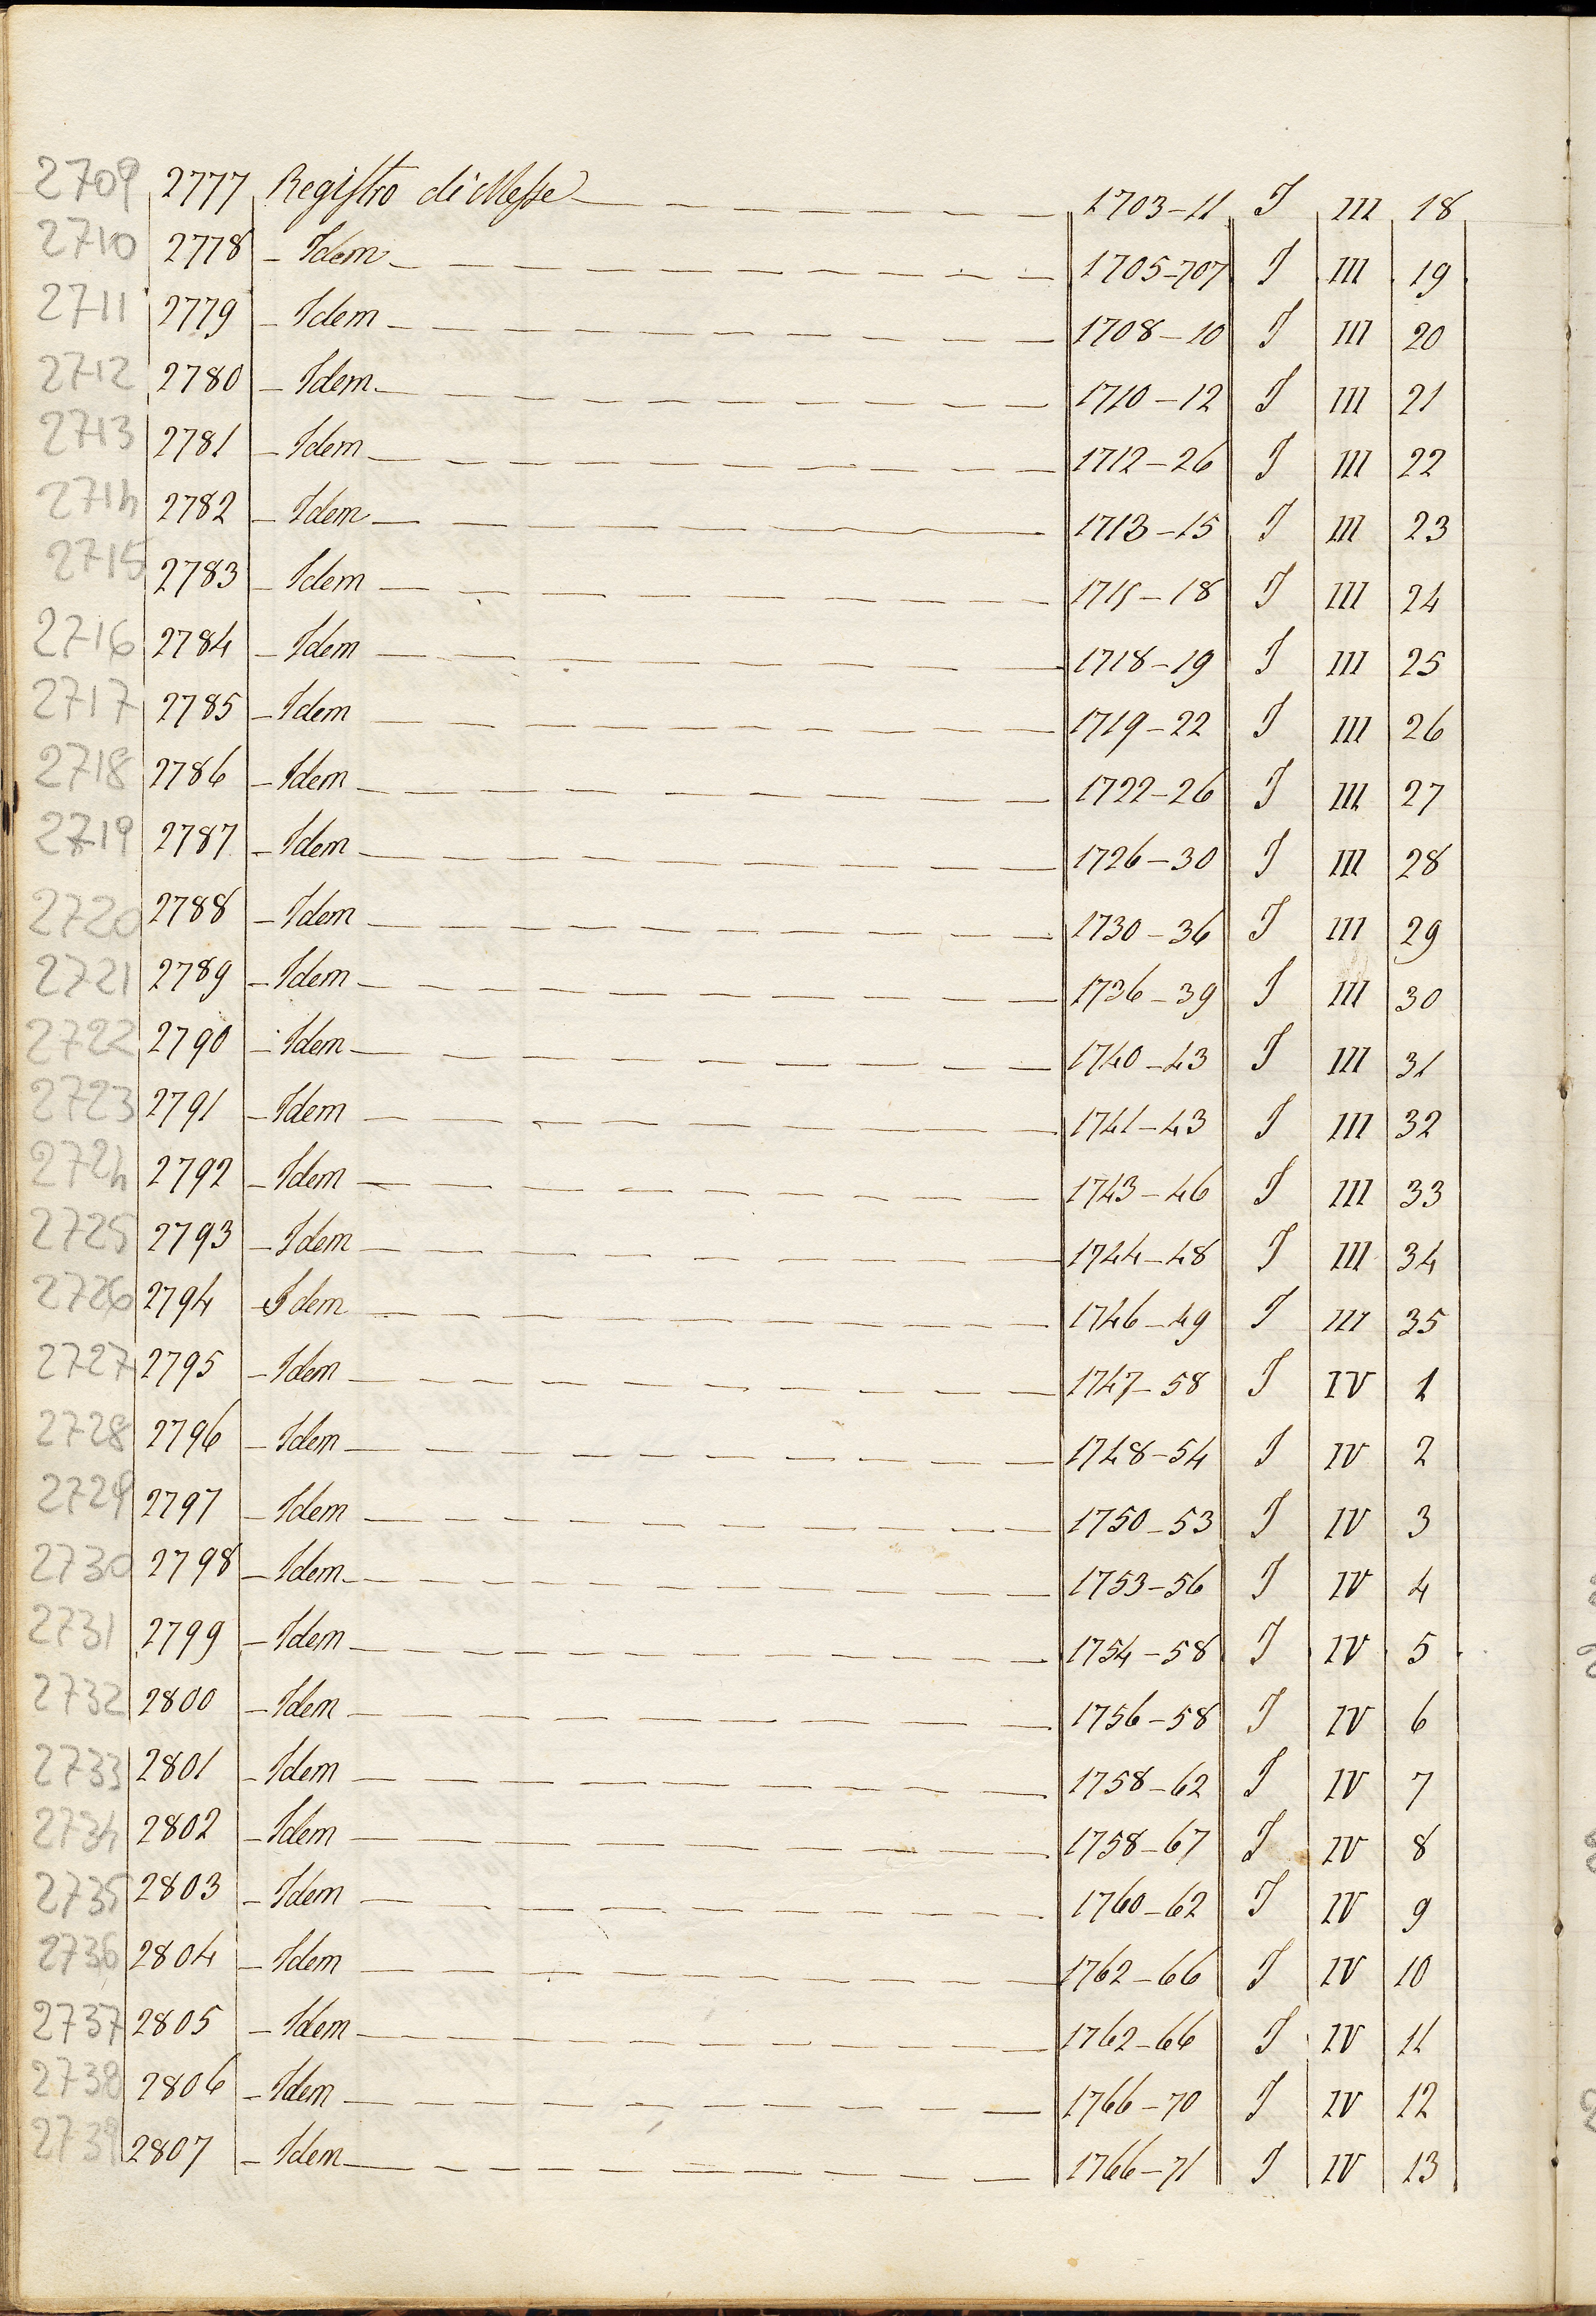 2709 2777 Registro di Messe 1703-11 I III 18
2710 2778 - Idem 1705-707 I III 19
2711 2779 - Idem 1708-10 I III 20
2712 2780 - Idem 1710-12 I III 21
2713 2781 - Idem 1712-26 I III 22
2714 2782 - Idem 1713-15 I III 23
2715 2783 - Idem 1715-18 I III 24
2716 2784 - Idem 1718-19 I III 25
2717 2785 - Idem 1719-22 I III 26
2718 2786 - Idem 1722-26 I III 27
2719 2787 - Idem 1726-30 I III 28
2720 2788 - Idem 1730-36 I III 29
2721 2789 - Idem 1736-39 I III 30
2722 2790 - Idem 1740-43 I III 31
2723 2791 - Idem 1741-43 I III 32
2724 2792 - Idem 1743-46 I III 33
2725 2793 - Idem 1744-48 I III 34
2726 2794 - Idem 1746-49 I III 35
2727 2795 - Idem 1747-58 I IV 1
2728 2796 - Idem 1748-54 I IV 2
2729 2797 - Idem 1750-53 I IV 3
2730 2798 - Idem 1753-56 I IV 4
2731 2799 - Idem 1754-58 I IV 5
2732 2800 - Idem 1756-58 I IV 6
2733 2801 - Idem 1758-62 I IV 7
2734 2802 - Idem 1758-67 I IV 8
2735 2803 - Idem 1760-62 I IV 9
2736 2804 - Idem 1762-66 I IV 10
2737 2805 - Idem 1762-66 I IV 11
2738 2806 - Idem 1766-70 I IV 12
2739 2807 - Idem 1766-71 I IV 13